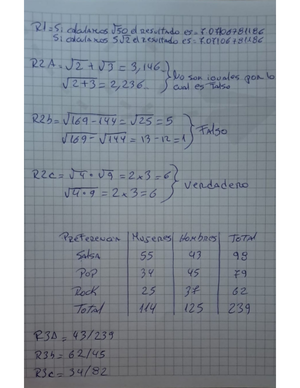 R1= Si calculamos √50 el resultado es = 7.071067811186
Si calculamos 5√2 el resultado es = 7.071067811186
R2A = √2 + √3 = 3,146 } No son iguales por lo
√2+3 = 2,236 cual es Falso
R2b = √169-144 = √25 = 5 } Falso
√169 - √144 = 13 - 12 = 1
R2c = √4 · √9 = 2x3 = 6 } Verdadero
√4·9 = 2x3 = 6
Preferencia Mujeres Hombres Total
Salsa 55 43 98
Pop 34 45 79
Rock 25 37 62
Total 114 125 239
R3A = 43/239
R3b = 62/45
R3c = 34/82